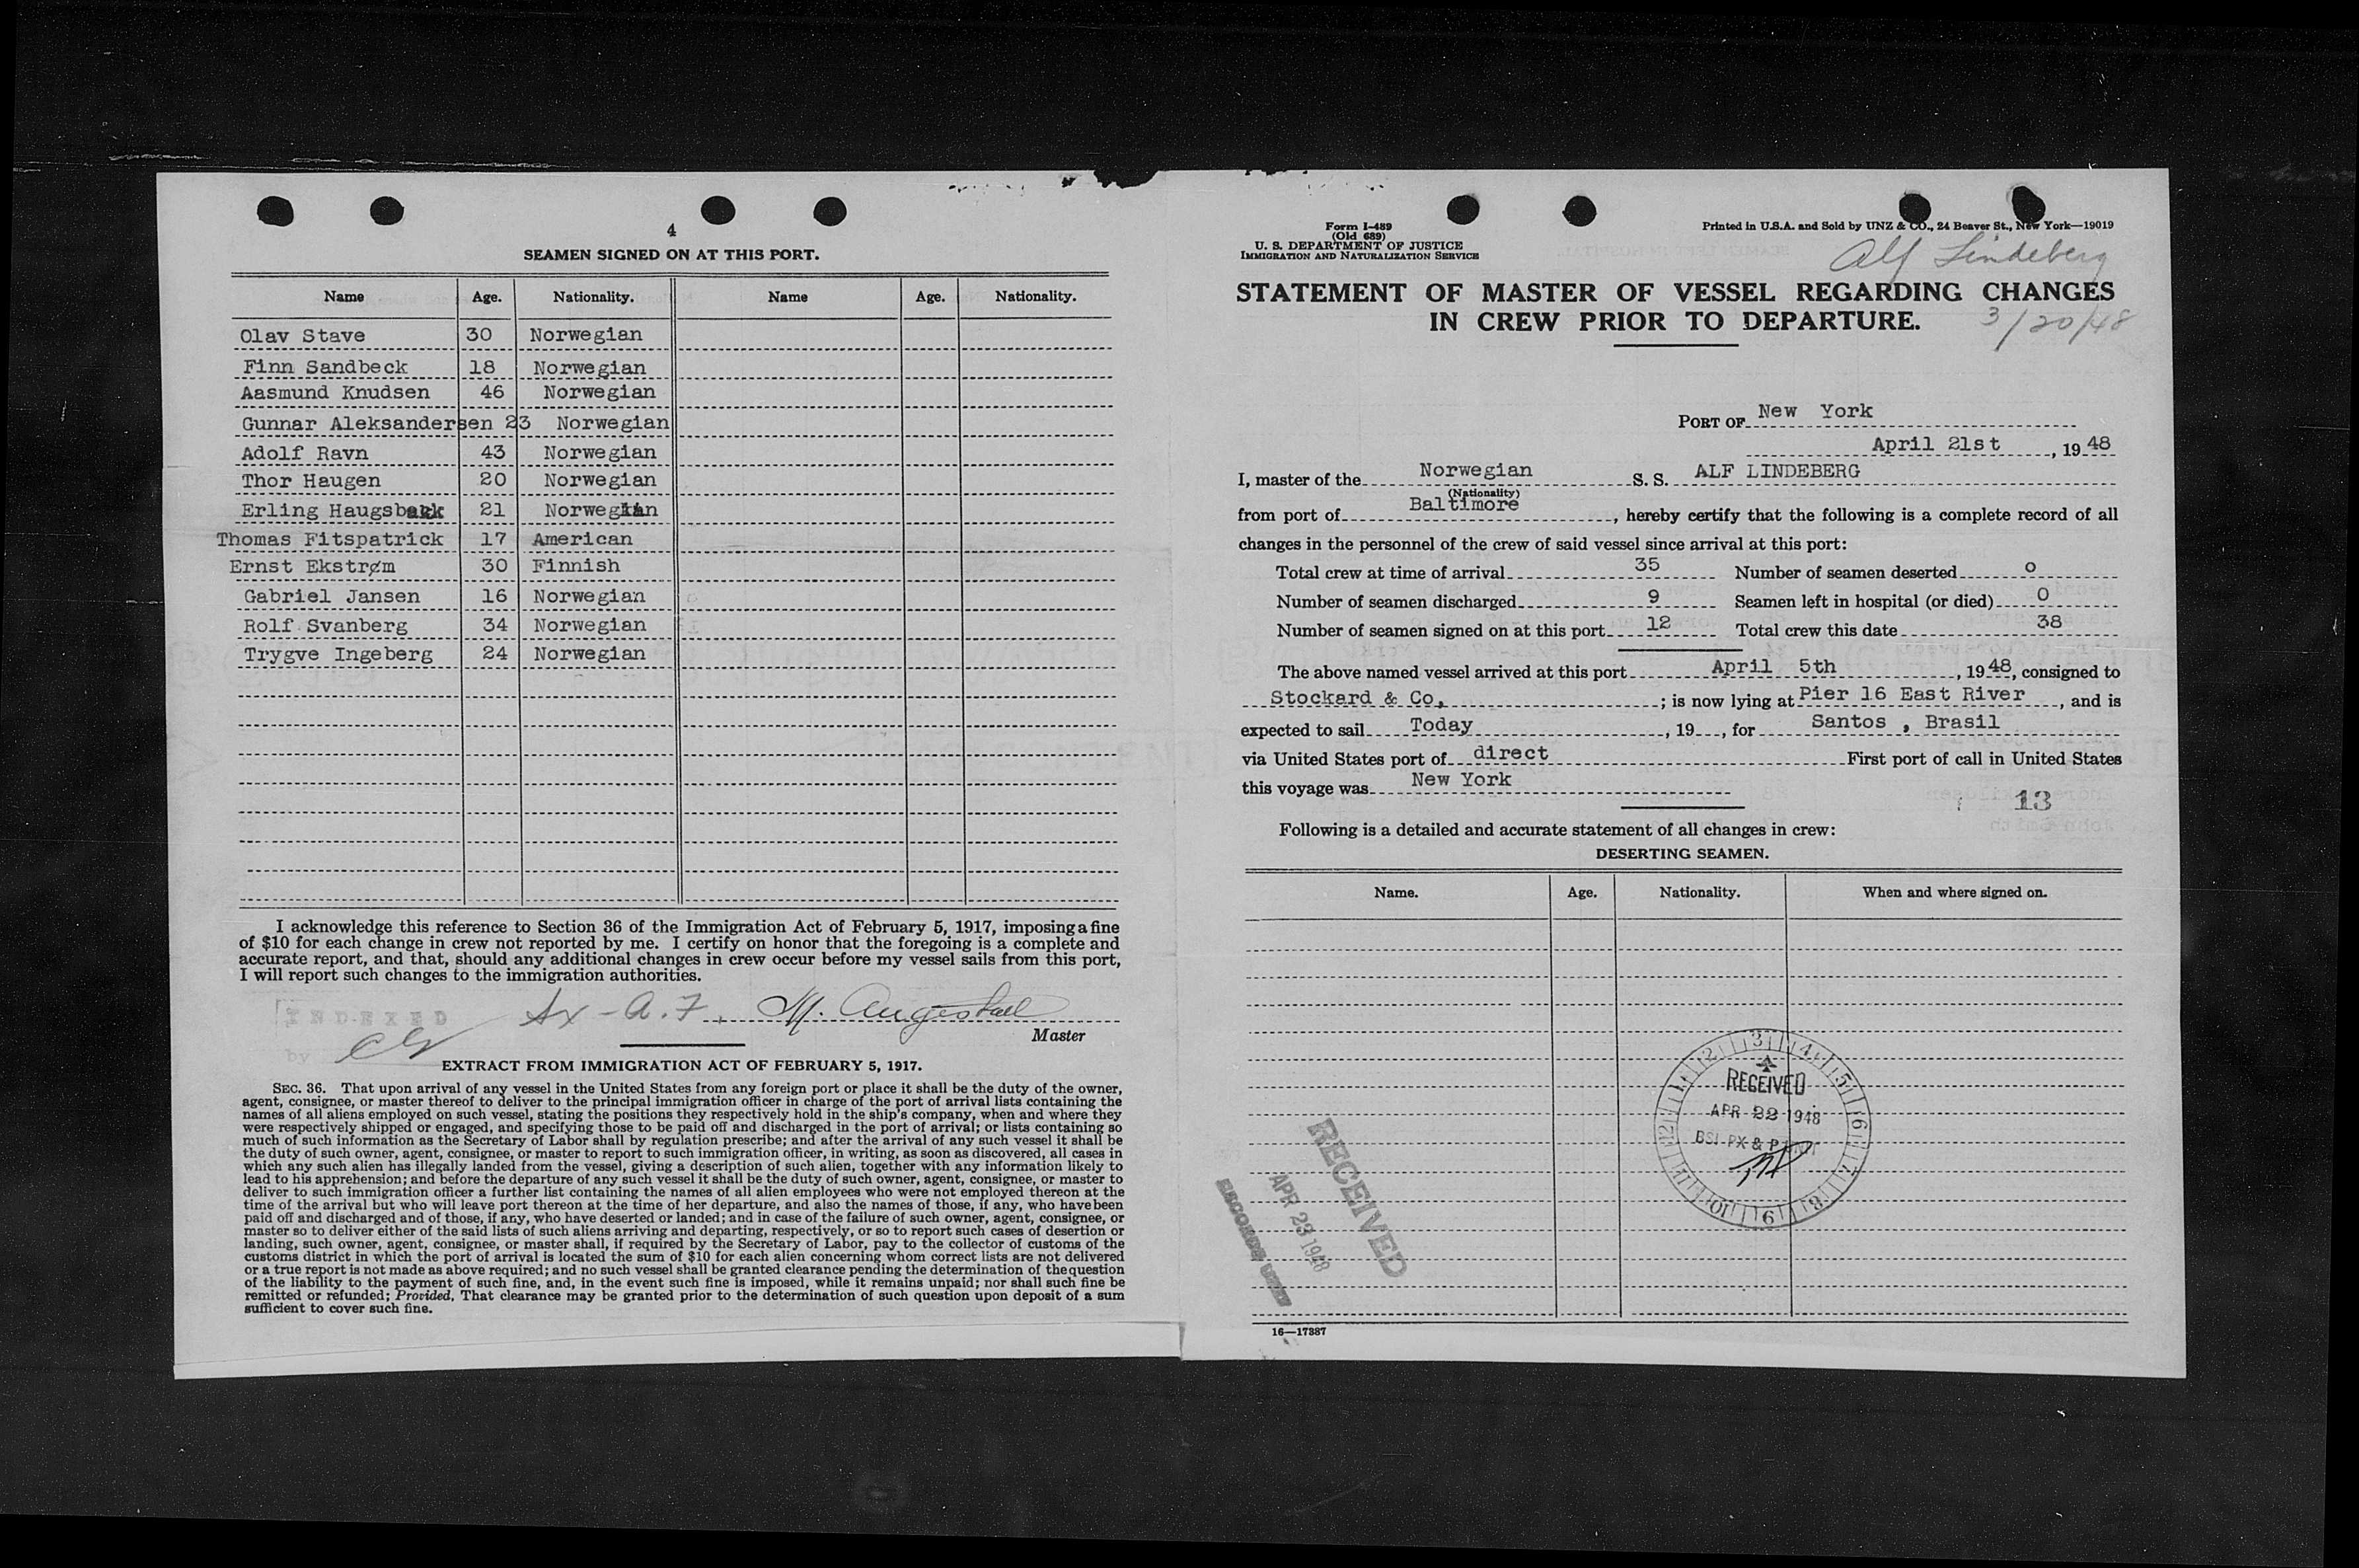 4
SEAMEN SIGNED ON AT THIS PORT.
Name Age. Nationality. Name Age. Nationality.
Olav Stave 30 Norwegian
Finn Sandbeck 18 Norwegian
Aasmund Knudsen 46 Norwegian
Gunnar Aleksandersen 23 Norwegian
Adolf Ravn 43 Norwegian
Thor Haugen 20 Norwegian
Erling 21 Norwegian
Thomas Fitspatrick 17 American
Ernst Ekstrøm 30 Finnish
Gabriel Jansen 16 Norwegian
Rolf Svanberg 34 Norwegian
Trygve Ingeberg 24 Norwegian
I acknowledge this reference to Section 36 of the Immigration Act of February 5, 1917, imposing a fine
of $10 for each change in crew not reported by me. I certify on honor that the foregoing is a complete and
accurate report, and that, should any additional changes in crew occur before my vessel sails from this port,
I will report such changes to the immigration authorities.
INDEXED
by
Master
EXTRACT FROM IMMIGRATION ACT OF FEBRUARY 5, 1917.
SEC. 36. That upon arrival of any vessel in the United States from any foreign port or place it shall be the duty of the owner,
agent, consignee, or master thereof to deliver to the principal immigration officer in charge of the port of arrival lists containing the
names of all aliens employed on such vessel, stating the positions they respectively hold in the ship's company, when and where they
were respectively shipped or engaged, and specifying those to be paid off and discharged in the port of arrival; or lists containing so
much of such information as the Secretary of Labor shall by regulation prescribe; and after the arrival of any such vessel it shall be
the duty of such owner, agent, consignee, or master to report to such immigration officer, in writing, as soon as discovered, all cases in
which any such alien has illegally landed from the vessel, giving a description of such alien, together with any information likely to
lead to his apprehension; and before the departure of any such vessel it shall be the duty of such owner, agent, consignee, or master to
deliver to such immigration officer a further list containing the names of all alien employees who were not employed thereon at the
time of the arrival but who will leave port thereon at the time of her departure, and also the names of those, if any, who have been
paid off and discharged and of those, if any, who have deserted or landed; and in case of the failure of such owner, agent, consignee, or
master so to deliver either of the said lists of such aliens arriving and departing, respectively, or so to report such cases of desertion or
landing, such owner, agent, consignee, or master shall, if required by the Secretary of Labor, pay to the collector of customs of the
customs district in which the port of arrival is located the sum of $10 for each alien concerning whom correct lists are not delivered
or a true report is not made as above required; and no such vessel shall be granted clearance pending the determination of the question
of the liability to the payment of such fine, and, in the event such fine is imposed, while it remains unpaid; nor shall such fine be
remitted or refunded; Provided, That clearance may be granted prior to the determination of such question upon deposit of a sum
sufficient to cover such fine.
Form I-489
(Old 689)
U. S. DEPARTMENT OF JUSTICE
IMMIGRATION AND NATURALIZATION SERVICE
Printed in U.S.A. and Sold by UNZ & CO., 24 Beaver St., New York—19019
Alf Lindeberg
STATEMENT OF MASTER OF VESSEL REGARDING CHANGES
IN CREW PRIOR TO DEPARTURE.
3/20/48
PORT OF New York
April 21st, 1948
I, master of the Norwegian S. S. ALF LINDEBERG
(Nationality)
from port of Baltimore, hereby certify that the following is a complete record of all
changes in the personnel of the crew of said vessel since arrival at this port:
Total crew at time of arrival 35 Number of seamen deserted o
Number of seamen discharged 9 Seamen left in hospital (or died) 0
Number of seamen signed on at this port 12 Total crew this date 38
The above named vessel arrived at this port April 5th, 1948, consigned to
Stockard & Co, ; is now lying at Pier 16 East River, and is
expected to sail Today, 19 , for Santos , Brasil
via United States port of direct First port of call in United States
this voyage was New York
13
Following is a detailed and accurate statement of all changes in crew:
DESERTING SEAMEN.
Name. Age. Nationality. When and where signed on.
RECEIVED
APR 22 1948
BSI PX & P UNIT
RECEIVED
APR 23 1948
RECORDS UNIT
16—17387